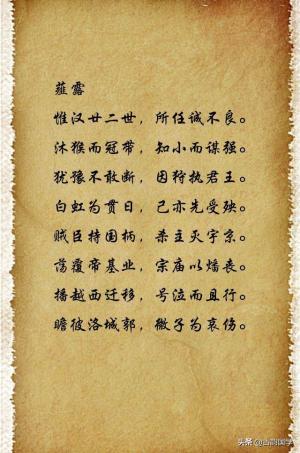 薤露
惟汉廿二世，所任诚不良。
沐猴而冠带，知小而谋强。
犹豫不敢断，因狩执君王。
白虹为贯日，己亦先受殃。
贼臣持国柄，杀主灭宇京。
荡覆帝基业，宗庙以燔丧。
播越西迁移，号泣而且行。
瞻彼洛城郭，微子为哀伤。
头条 @古韵国学